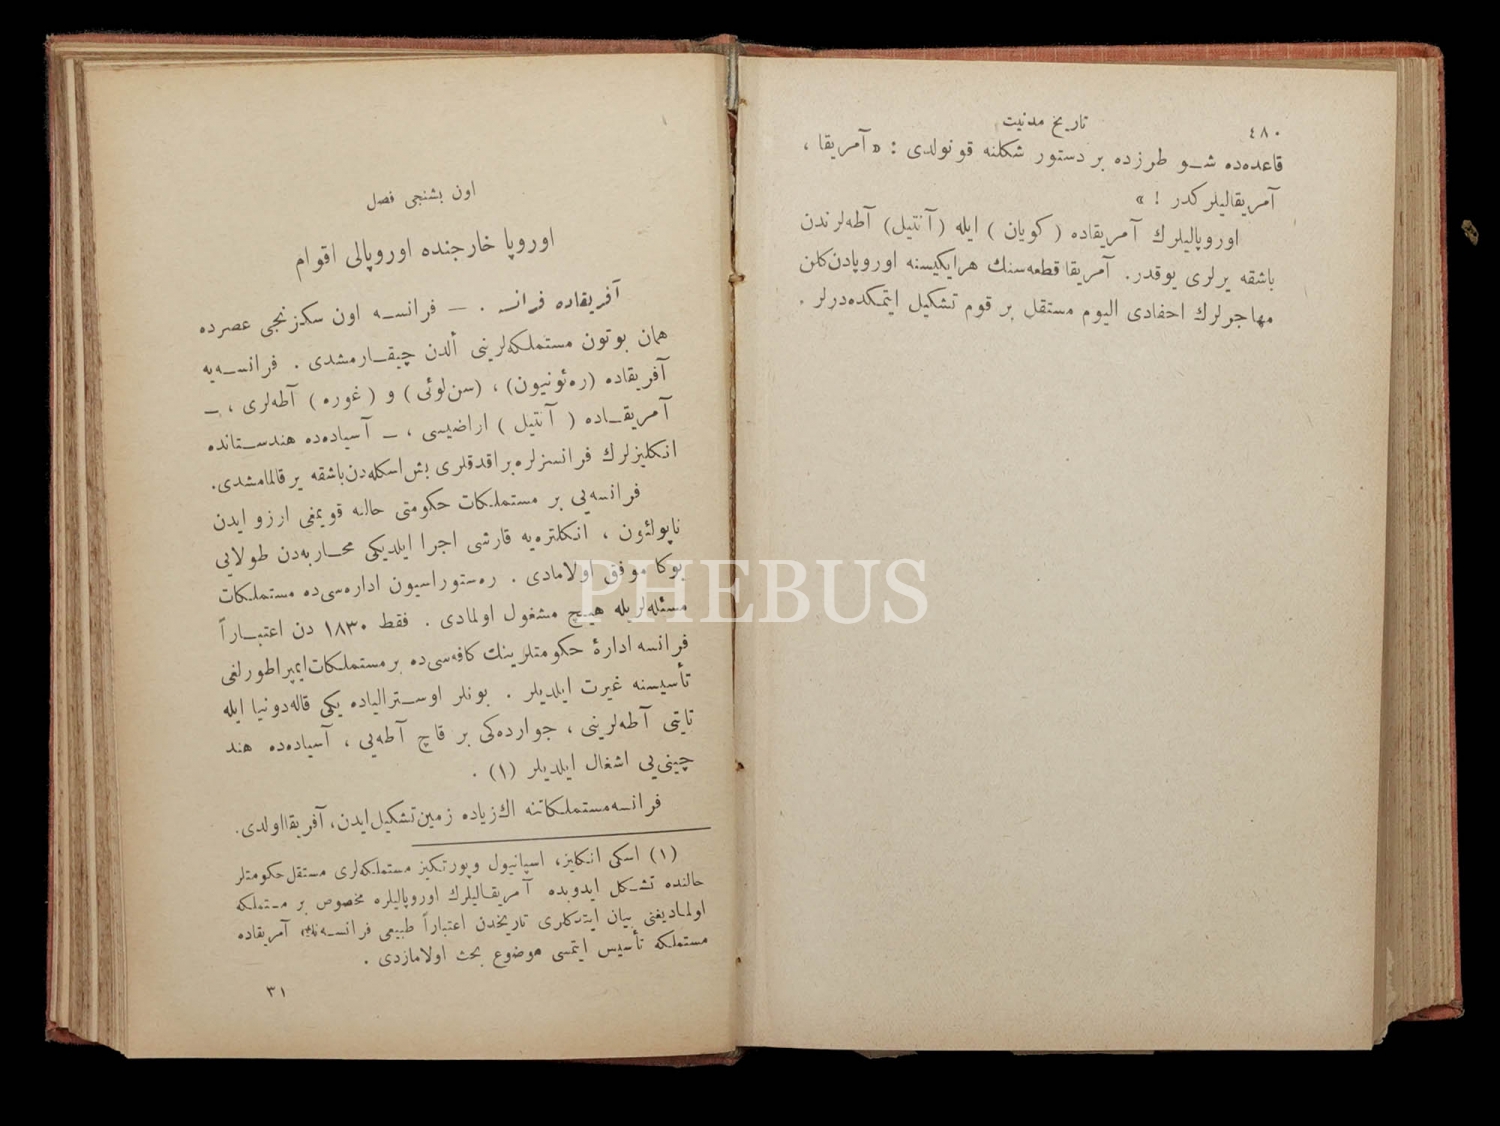 ٤٨٠
تاريخ مدنيت
قاعده‌ده شو طرزده بر دستور شكلنه قونولدى : « آمريقا ،
آمريقاليلركدر ! »
اوروپاليلرك آمريقاده ( كويان ) ايله ( آنتيل ) آطه‌لرندن
باشقه يرلرى يوقدر . آمريقا قطعه‌سنك هرايكيسنه اوروپادن‌كلن
مهاجرلرك احفادى اليوم مستقل بر قوم تشكيل ايتمكده‌درلر .
اون بشنجى فصل
اوروپا خارجنده اوروپالى اقوام
آفريقاده فرانسه . — فرانسه اون سكزنجى عصرده
همان بوتون مستملكه‌لرينى ألدن چيقارمشدى . فرانسه‌يه
آفريقاده (ره‌ئونيون) ، (سن‌لوئى) و ( غوره ) آطه‌لرى ، —
آمريقاده ( آنتيل ) اراضيسى ، — آسياده‌ده هندستانده
انكليزلرك فرانسزلره‌براقدقلرى بش‌اسكله‌دن‌باشقه ير قالمامشدى.
فرانسه‌يى بر مستملكات حكومتى حالنه قويمغى ارزو ايدن
ناپولئون ، انكلتره‌يه قارشى اجرا ايلديكى محاربه‌دن طولايى
بوكا موفق اولامادى . ره‌ستوراسيون اداره‌سى‌ده مستملكات
مسئله‌لريله هيچ مشغول اولمادى . فقط ١٨٣٠ دن اعتباراً
فرانسه ادارۀ حكومتلرينك كافه‌سى‌ده برمستملكات‌ايمپراطورلغى
تأسيسنه غيرت ايلديلر . بونلر اوسترالياده يكى قاله‌دونيا ايله
تايتى آطه‌لرينى ، جوارده‌كى بر قاچ آطه‌يى ، آسياده‌ده هند
چينى‌يى اشغال ايلديلر (١) .
فرانسه‌مستملكاتنه اك‌زياده زمين‌تشكيل‌ايدن، آفريقااولدى.
(١) اسكى انكليز، اسپانيول وپورتكيز مستملكه‌لرى مستقل‌حكومتلر
حالنده تشكل ايدوبده آمريقاليلرك اوروپاليلره مخصوص بر مستملكه
اولماديغنى بيان ايتدكلرى تاريخدن اعتباراً طبيعى فرانسه‌نك آمريقاده
مستملكه تأسيس ايتمسى موضوع بحث اولامازدى .
٣١
PHEBUS